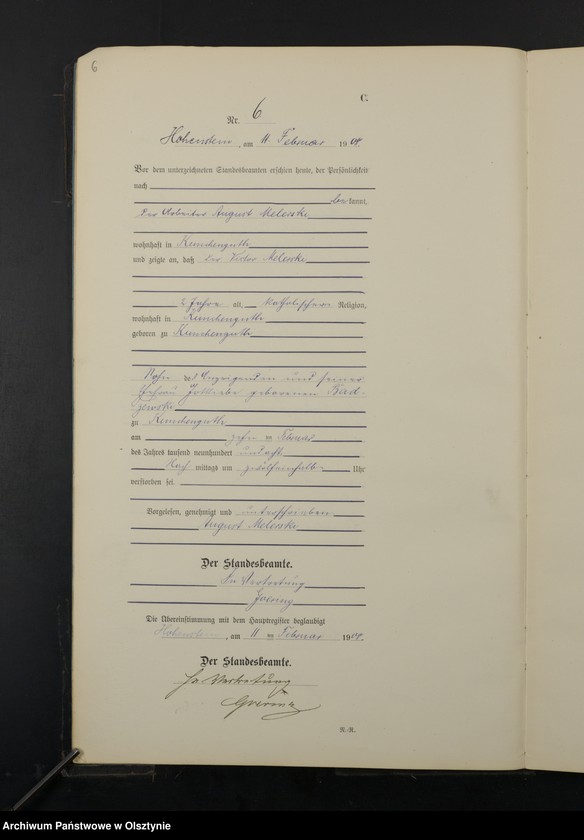 6
C.
Nr. 6
Hohenstein, am 11 Februar 1908.
Vor dem unterzeichneten Standesbeamten erschien heute, der Persönlichkeit
nach
bekannt,
der Arbeiter August Melewski
wohnhaft in Kunchengutte
und zeigte an, daß der Victor Melewski
2 Jahre alt, katholischer Religion,
wohnhaft in Kunchengutte
geboren zu Kunchengutte
Sohn des Anzeigenden und seiner
Ehefrau Gottliebe geborenen
zu Kunchengutte
am zehn ten Februar
des Jahres tausend neunhundert und acht
Nach mittags um zwölfeinhalb Uhr
verstorben sei.
Vorgelesen, genehmigt und unterschrieben
August Melewski
Der Standesbeamte.
In Vertretung
Die Übereinstimmung mit dem Hauptregister beglaubigt
Hohenstein, am 11 ten Februar 1908.
Der Standesbeamte.
In Vertretung
N.-R.
Archiwum Państwowe w Olsztynie